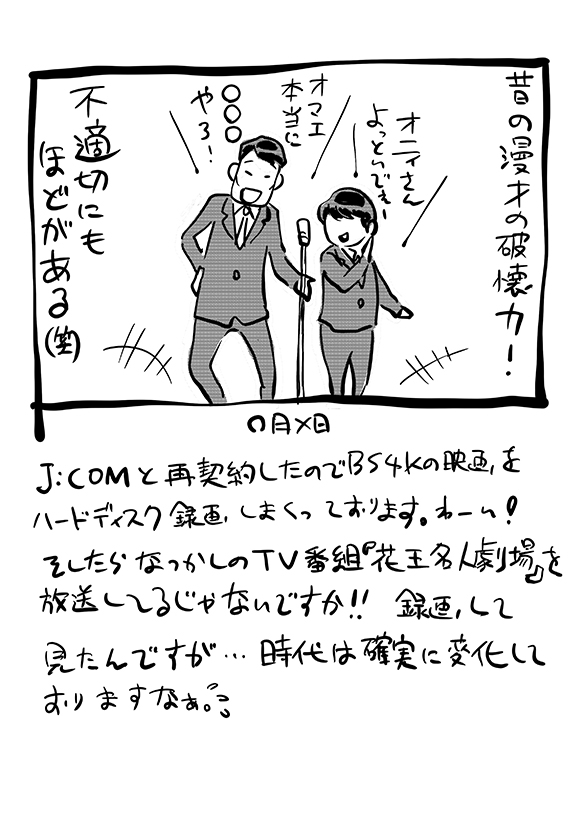 昔の漫才の破壊力!
オニィさん
よっとんでぇー
オマエ
本当に
〇〇〇
やろ!
不適切にも
ほどがある
(笑)
〇月×日
J:COMと再契約したのでBS4Kの映画を
ハードディスク録画しまくっております。わーい!
そしたらなつかしのTV番組『花王名人劇場』を
放送してるじゃないですか!! 録画して
見たんですが…時代は確実に変化して
おりますなぁ。